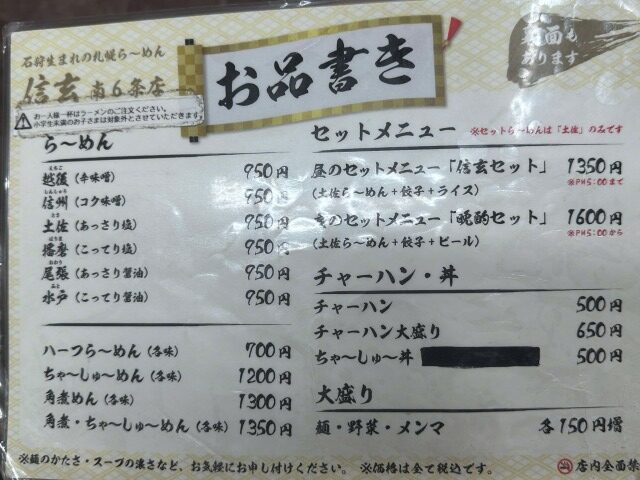 石狩生まれの札幌ら〜めん
信玄 南6条店
お品書き
裏面も
あります
⚠お一人様一杯はラーメンのご注文ください。
小学生未満のお子さまは対象外とさせていただきます
ら〜めん
越後(辛味噌) 950円
信州(コク味噌) 950円
土佐(あっさり塩) 950円
播磨(こってり塩) 950円
尾張(あっさり醤油) 950円
水戸(こってり醤油) 950円
ハーフら〜めん(各味) 700円
ちゃ〜しゅ〜めん(各味) 1200円
角煮めん(各味) 1300円
角煮・ちゃ〜しゅ〜めん(各味) 1350円
セットメニュー ※セットら〜めんは「土佐」のみです
昼のセットメニュー「信玄セット」 1350円
(土佐ら〜めん+餃子+ライス) ※PM5:00まで
夜のセットメニュー「晩酌セット」 1600円
(土佐ら〜めん+餃子+ビール) ※PM5:00から
チャーハン・丼
チャーハン 500円
チャーハン大盛り 650円
ちゃ〜しゅ〜丼 500円
大盛り
麺・野菜・メンマ 各150円増
※麺のかたさ・スープの濃さなど、お気軽にお申し付けください。 ※価格は全て税込です。
店内全面禁